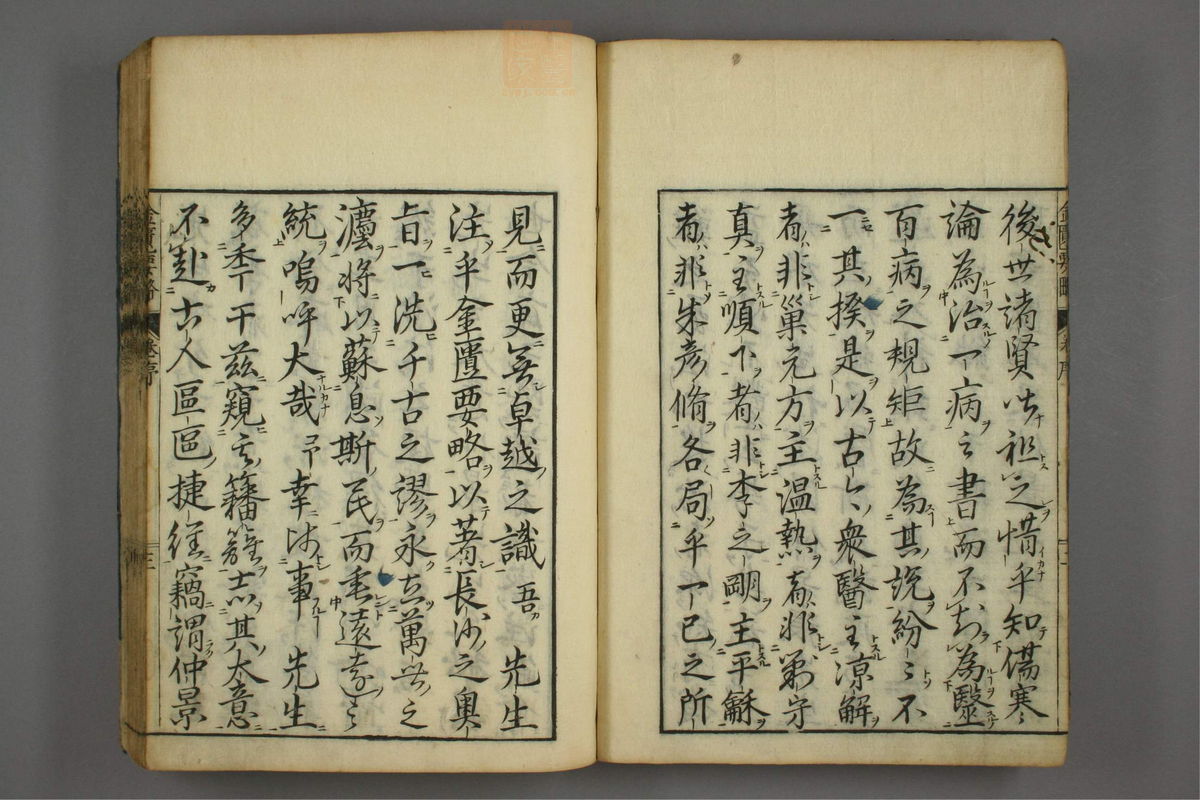 後世諸賢咲祖之惜乎知傷寒
論為治一病之書而不知為醫
百病之規矩故為其說紛〻不
一其揆是以古今眾醫主涼解
者非巢元方主温熱者非劉守
真主順下者非李之剛主平龢
者非朱彥脩各局乎一己之所
見而更無卓越之識吾先生
注乎金匱要略以著長沙之奧
旨一洗千古之謬永立萬世之
灋將以蘇息斯民而垂遠意之
統嗚呼大哉予幸汝事先生
多季于茲窺其籓籬志其大意
不赴古人區區捷徑竊謂仲景